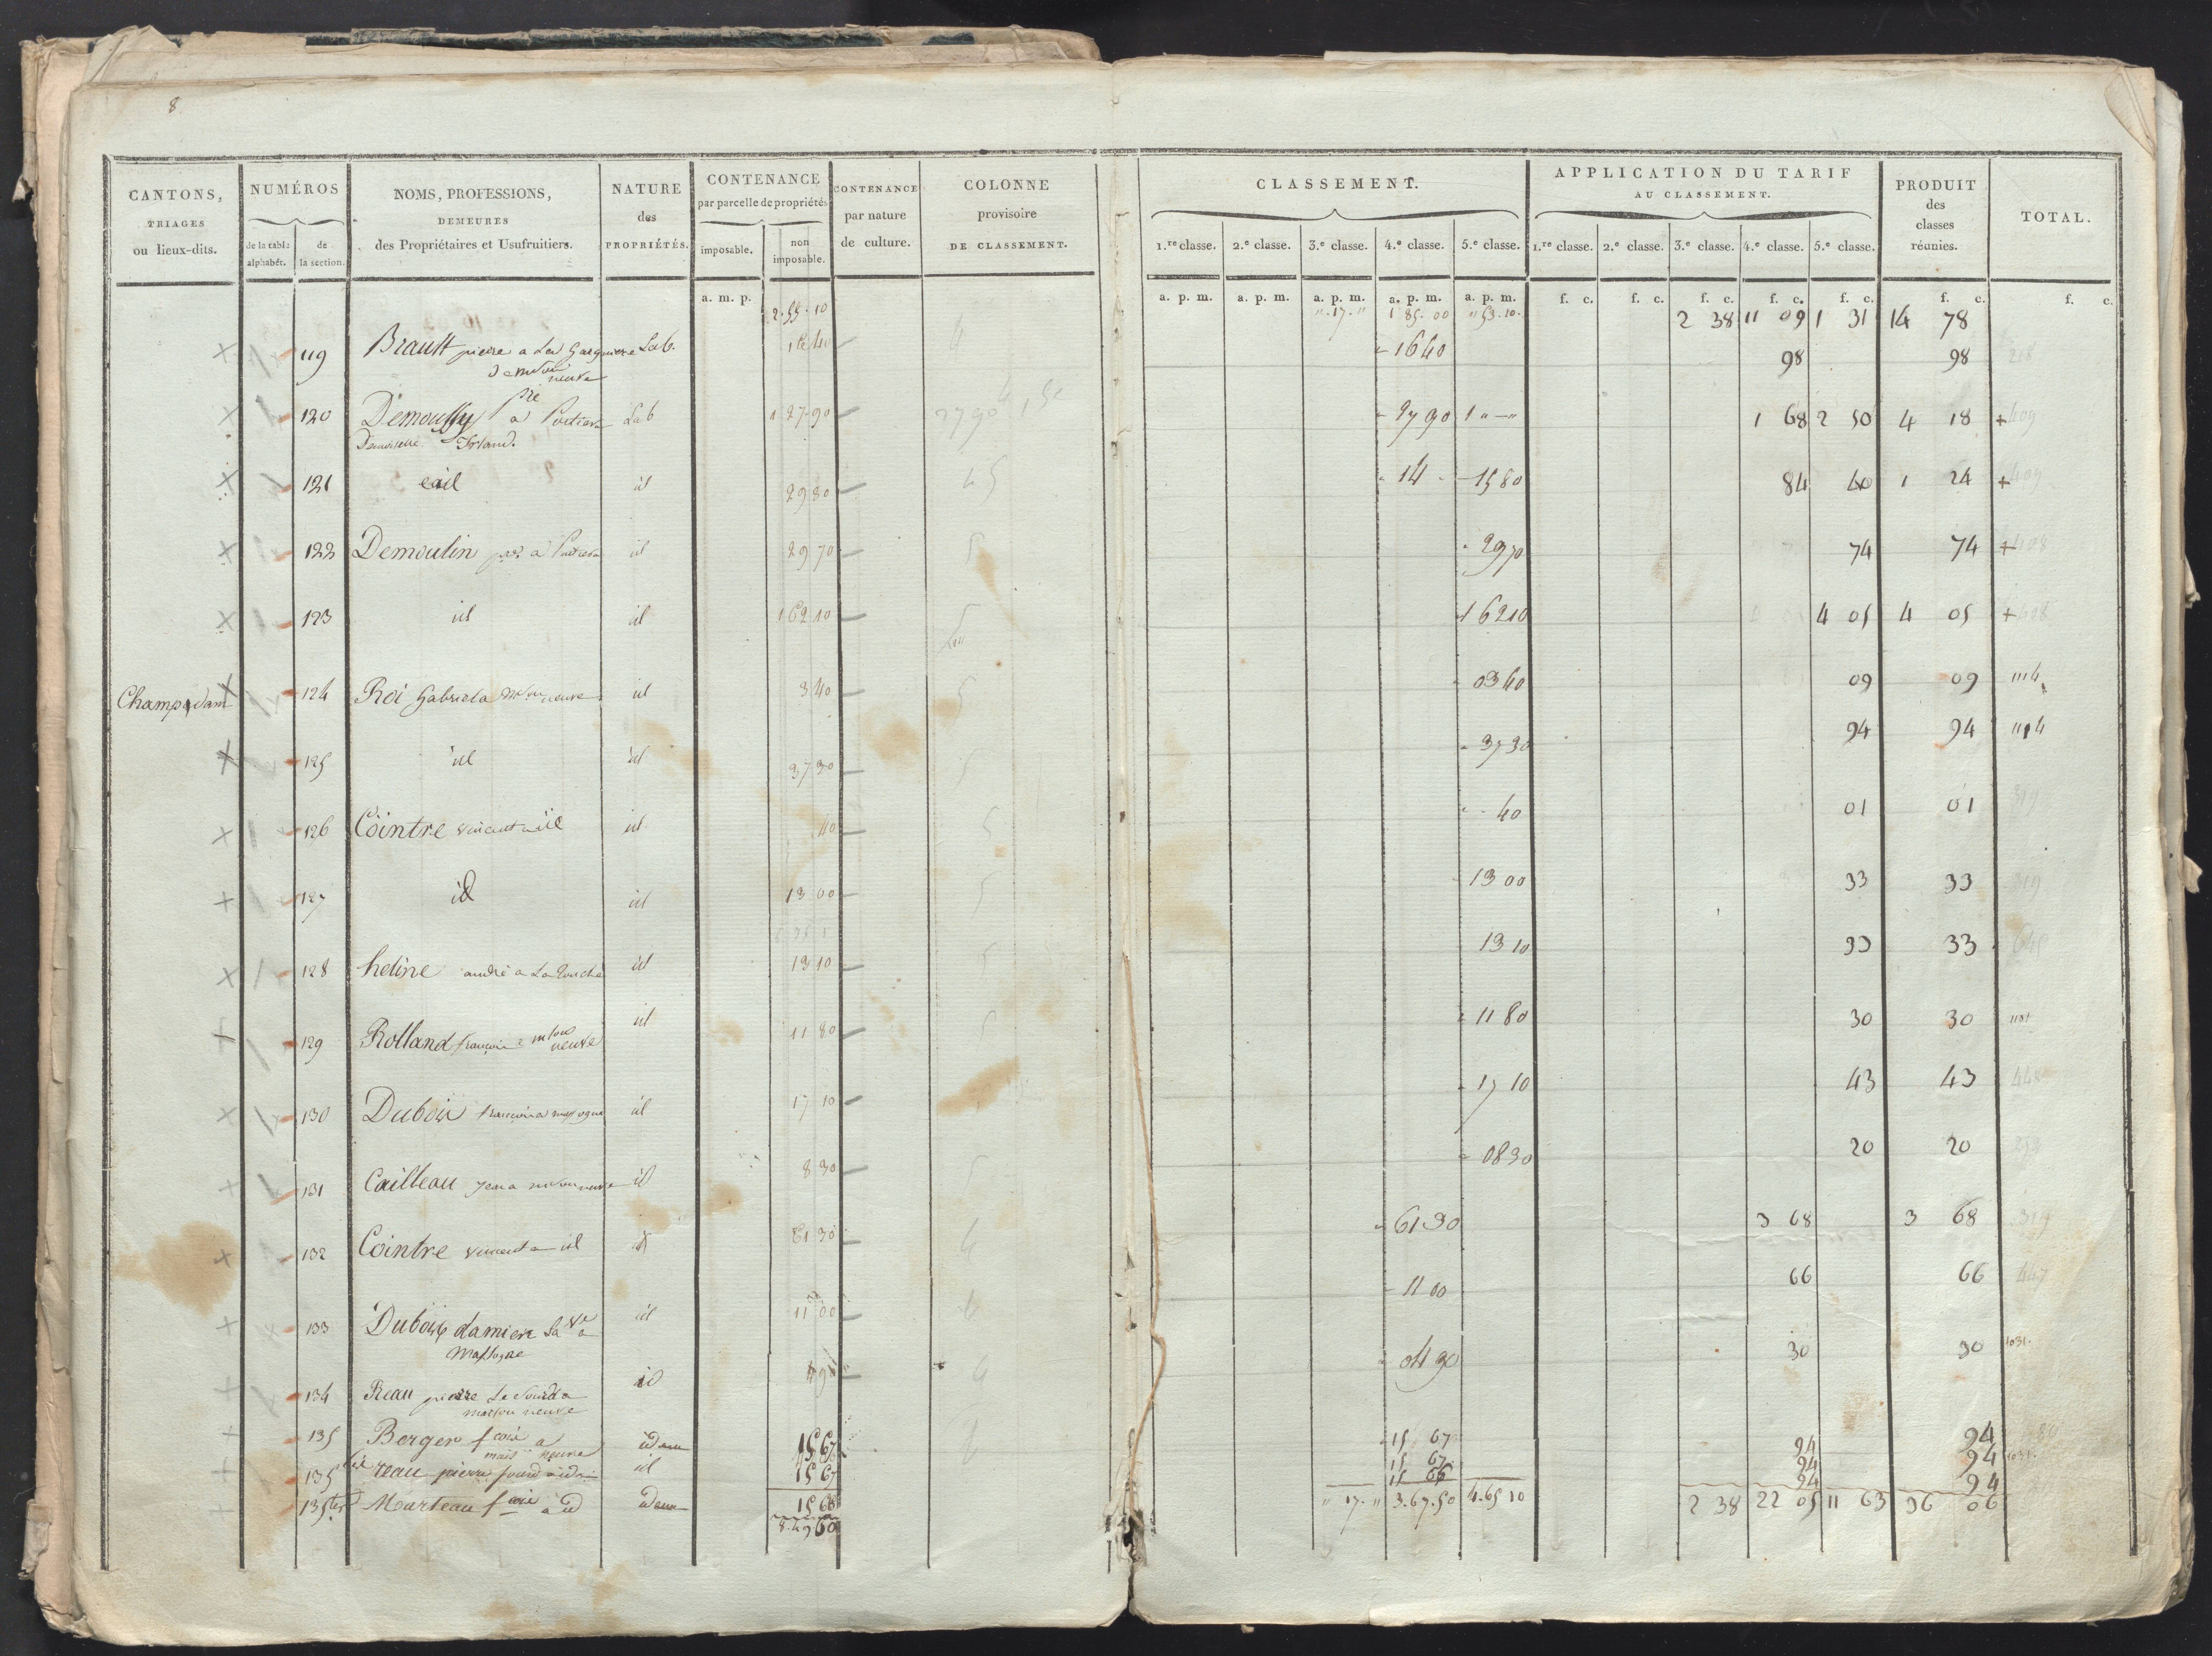 8
CANTONS, TRIAGES ou lieux-dits.
NUMÉROS
de la table alphabét.
de la section.
NOMS, PROFESSIONS, DEMEURES des Propriétaires et Usufruitiers.
NATURE des PROPRIÉTÉS.
CONTENANCE par parcelle de propriétés
imposable.
non imposable.
CONTENANCE par nature de culture.
COLONNE provisoire DE CLASSEMENT.
CLASSEMENT.
1.re classe. 2.e classe. 3.e classe. 4.e classe. 5.e classe.
APPLICATION DU TARIF AU CLASSEMENT.
1.re classe. 2.e classe. 3.e classe. 4.e classe. 5.e classe.
PRODUIT des classes réunies.
TOTAL.
a. m. p. a. p. m. a. p. m. a. p. m. a. p. m. a. p. m. f. c. f. c. f. c. f. c. f. c. f. c. f. c.
2.55.10 " 17 " 1 85 00 " 53 10 2 38 11 09 1 31 14 78
119 Brault pierre a La Lab. 16 40 16 40 98 98 218
neuve
120 Demoussy pre a Poitiers Lab 1 27 90 27 90 1 " " 1 68 2 50 4 18 + 409
Demoiselle Irland.
121 id 29 80 4 5 14 15 80 84 40 1 24 + 409
122 Demoulin a Poitiers id 29 70 5 29 70 74 74 + 408
123 id id 1 62 10 5 1 62 10 4 05 4 05 + 408
124 Roi Gabriel a neuve id 3 40 5 03 40 09 09 1114
125 id id 37 30 5 37 30 94 94 1114
126 Cointre vincent a id id 40 5 40 01 01 319
127 id id 13 00 5 13 00 33 33 319
128 heline andré a La Touche id 13 10 5 13 10 33 33 645
129 Rolland françois a mson neuve id 11 80 5 11 80 30 30 1131
130 Dubois françois a massogne id 17 10 17 10 43 43
131 Cailleau Jean a neuve id 8 30 5 08 30 20 20
132 Cointre vincent a id id 61 30 4 61 30 3 68 3 68 319
133 Dubois damien La ve a id 11 00 4 11 00 66 66 447
massogne
134 Reau pierre Le Sourd a id 4 90 4 04 90 30 30 1031
maison neuve
135 Berger fcois a idem 15 67 4 15 67 94 94
mais neuve
135 bis reau pierre sourd id 15 67 15 67 94 94 1031
135 ter Marteau fcois a id idem 15 66 15 66 94 94
8.49 60 " 17 " 3.67.50 4.65 10 2 38 22 05 11 63 36 06